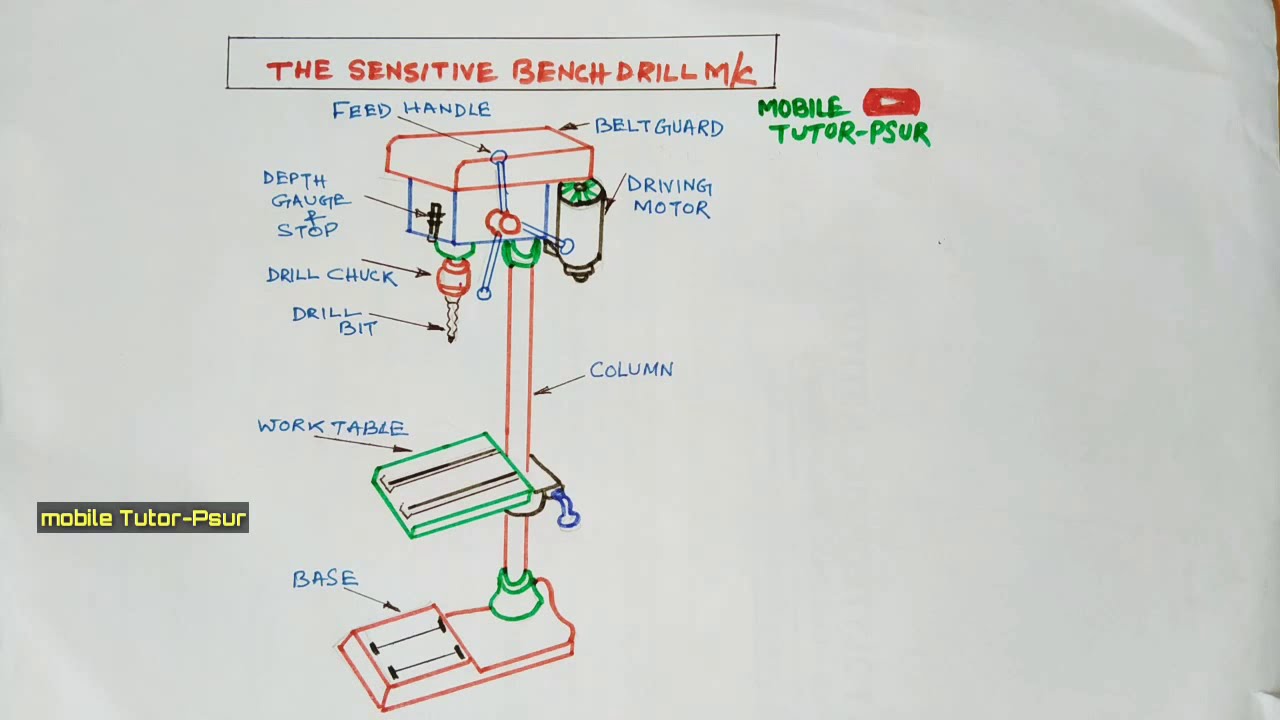 THE SENSITIVE BENCH DRILL M/C
MOBILE
TUTOR-PSUR
FEED HANDLE
BELT GUARD
DEPTH
GAUGE
&
STOP
DRIVING
MOTOR
DRILL CHUCK
DRILL
BIT
COLUMN
WORK TABLE
mobile Tutor-Psur
BASE